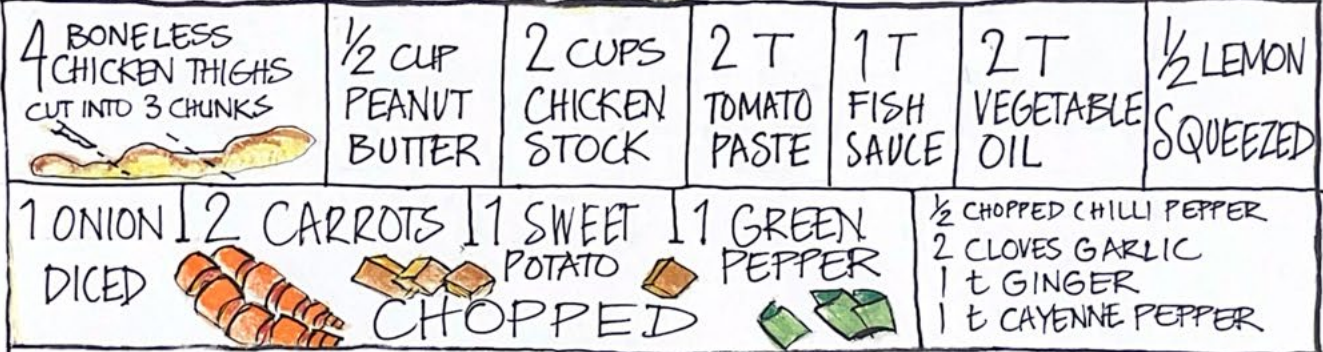 4 BONELESS
CHICKEN THIGHS
CUT INTO 3 CHUNKS
1/2 CUP
PEANUT
BUTTER
2 CUPS
CHICKEN
STOCK
2 T
TOMATO
PASTE
1 T
FISH
SAUCE
2 T
VEGETABLE
OIL
1/2 LEMON
SQUEEZED
1 ONION
DICED
2 CARROTS
1 SWEET
POTATO
1 GREEN
PEPPER
CHOPPED
1/2 CHOPPED CHILLI PEPPER
2 CLOVES GARLIC
1 t GINGER
1 t CAYENNE PEPPER